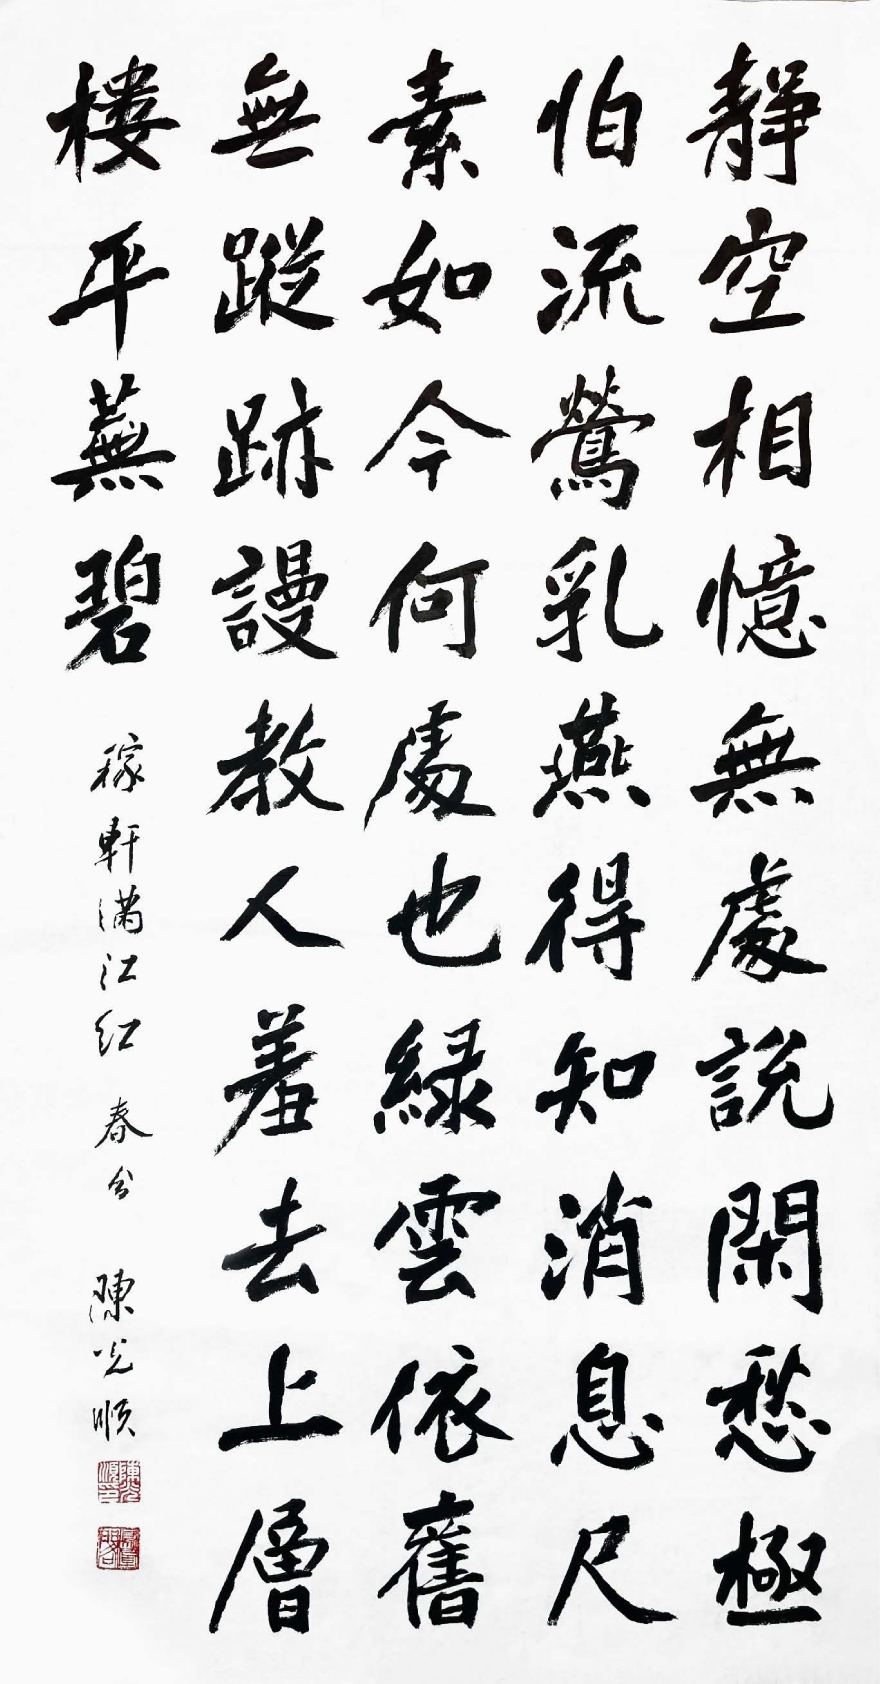 靜空相憶無處說閑愁極
怕流鶯乳燕得知消息尺
素如今何處也綠雲依舊
無蹤跡謾教人羞去上層
樓平蕪碧
稼軒满江红 春分 陳光順